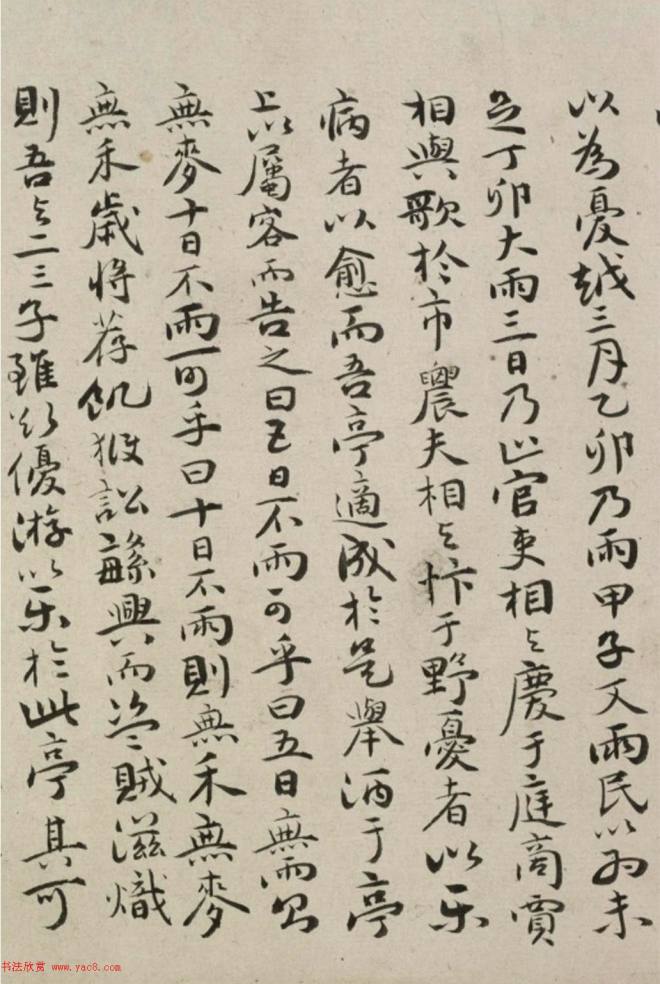 以為憂越三月乙卯乃雨甲子又雨民以為未
足丁卯大雨三日乃止官吏相与慶于庭商賈
相與歌於市農夫相与忭于野憂者以樂
病者以愈而吾亭適成於是舉酒于亭
上以屬客而告之曰五日不雨可乎曰五日無雨則
無麥十日不雨可乎曰十日不雨則無禾無麥
無禾歲將荐飢獄訟繇興而盜賊滋熾
則吾与二三子雖欲優游以樂於此亭其可
书法欣赏 www.yac8.com